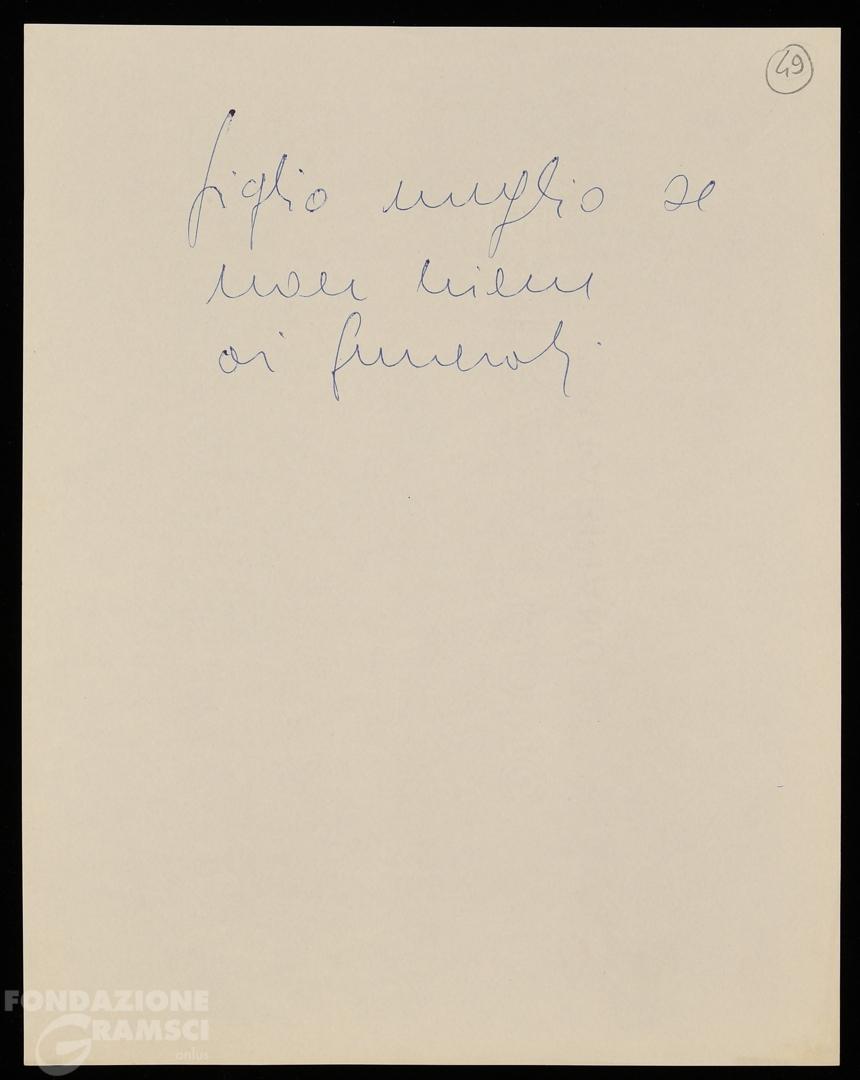 49
figlio meglio se
non viene
ai funerali.
FONDAZIONE
GRAMSCI
onlus